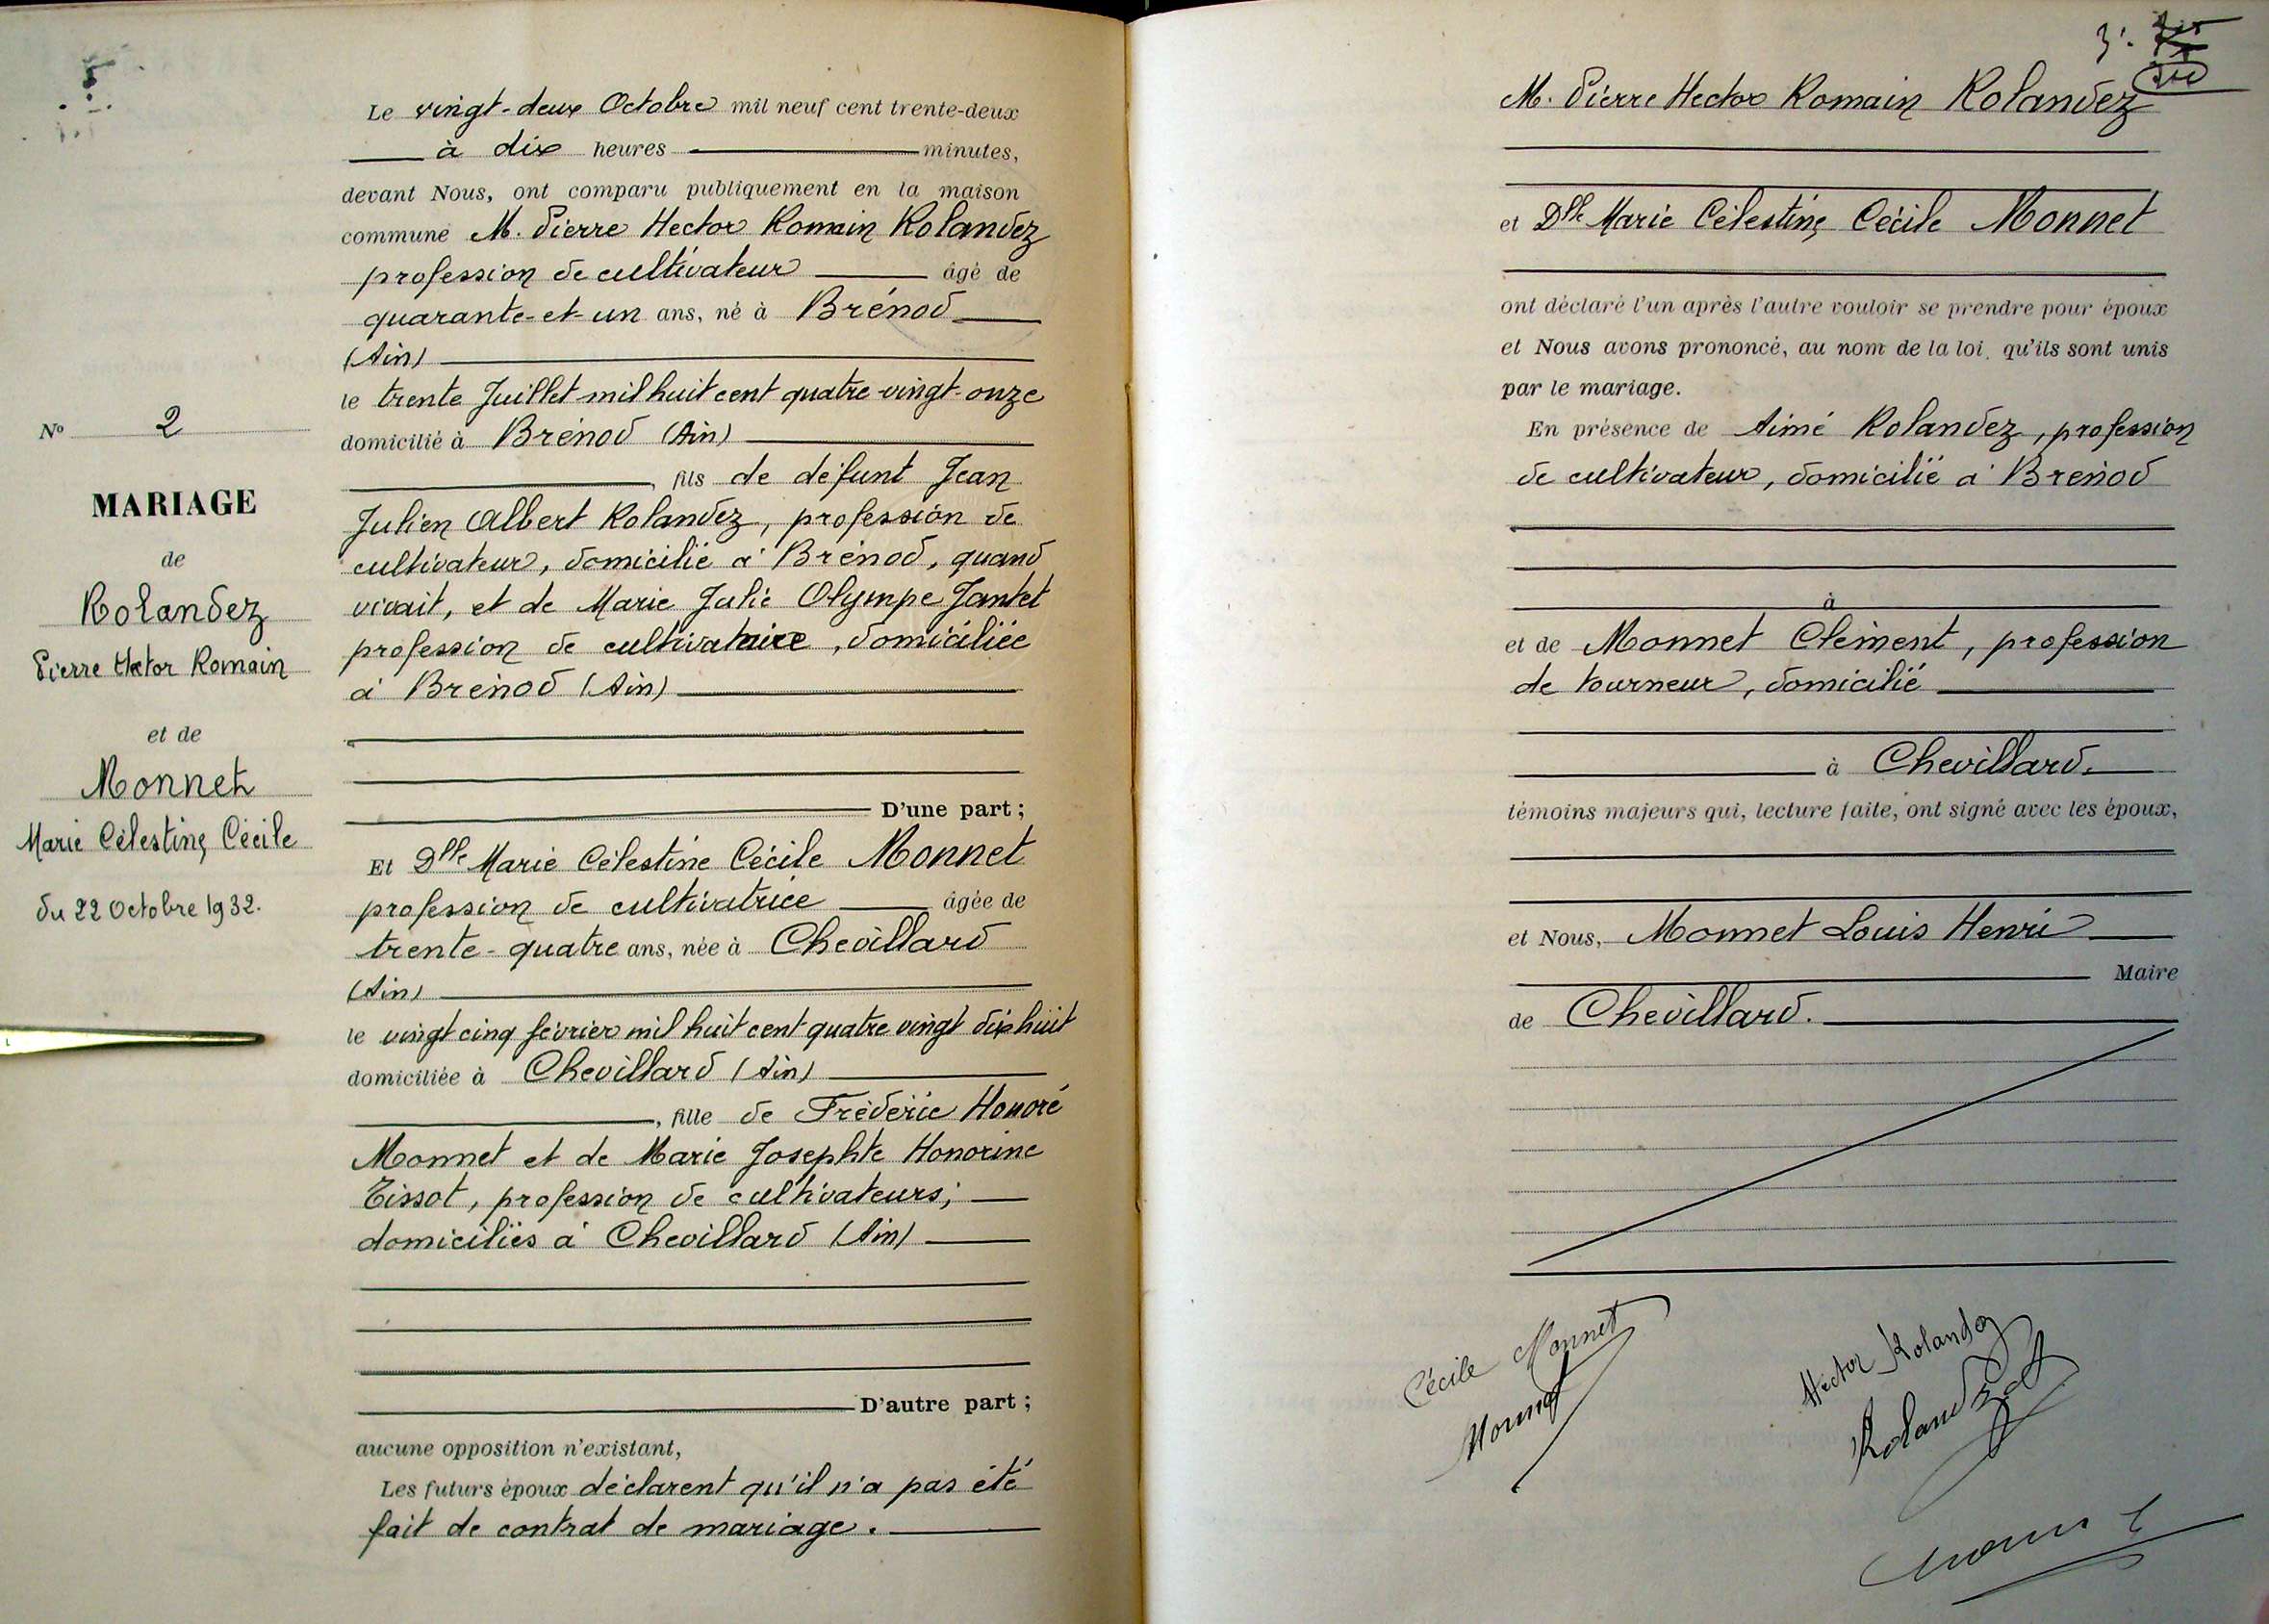 N° 2
MARIAGE
de
Rolandez
Pierre Hector Romain
et de
Monnet
Marie Célestine Cécile
du 22 Octobre 1932.
Le vingt-deux Octobre mil neuf cent trente-deux
à dix heures minutes,
devant Nous, ont comparu publiquement en la maison
commune M. Pierre Hector Romain Rolandez
profession de cultivateur âgé de
quarante-et-un ans, né à Brénod
(Ain)
le trente Juillet mil huit cent quatre-vingt-onze
domicilié à Brénod (Ain)
, fils de défunt Jean
Julien Albert Rolandez, profession de
cultivateur, domicilié à Brénod, quand
vivait, et de Marie Julie Olympe Jantet
profession de cultivatrice, domiciliée
à Brénod (Ain)
D'une part ;
Et Dlle Marie Célestine Cécile Monnet
profession de cultivatrice âgée de
trente-quatre ans, née à Chevillard
(Ain)
le vingt cinq février mil huit cent quatre vingt dix huit
domiciliée à Chevillard (Ain)
, fille de Frédéric Honoré
Monnet et de Marie Josephte Honorine
Tissot, profession de cultivateurs,
domiciliés à Chevillard (Ain)
D'autre part ;
aucune opposition n'existant,
Les futurs époux déclarent qu'il n'a pas été
fait de contrat de mariage.
M. Pierre Hector Romain Rolandez
et Dlle Marie Célestine Cécile Monnet
ont déclaré l'un après l'autre vouloir se prendre pour époux
et Nous avons prononcé, au nom de la loi, qu'ils sont unis
par le mariage.
En présence de Aimé Rolandez, profession
de cultivateur, domicilié à Brénod
à
et de Monnet Clément, profession
de tourneur, domicilié
à Chevillard.
témoins majeurs qui, lecture faite, ont signé avec les époux,
et Nous, Monnet Louis Henri
Maire
de Chevillard.
Cécile Monnet
Hector Rolandez
Monnet
Rolandez
Monnet